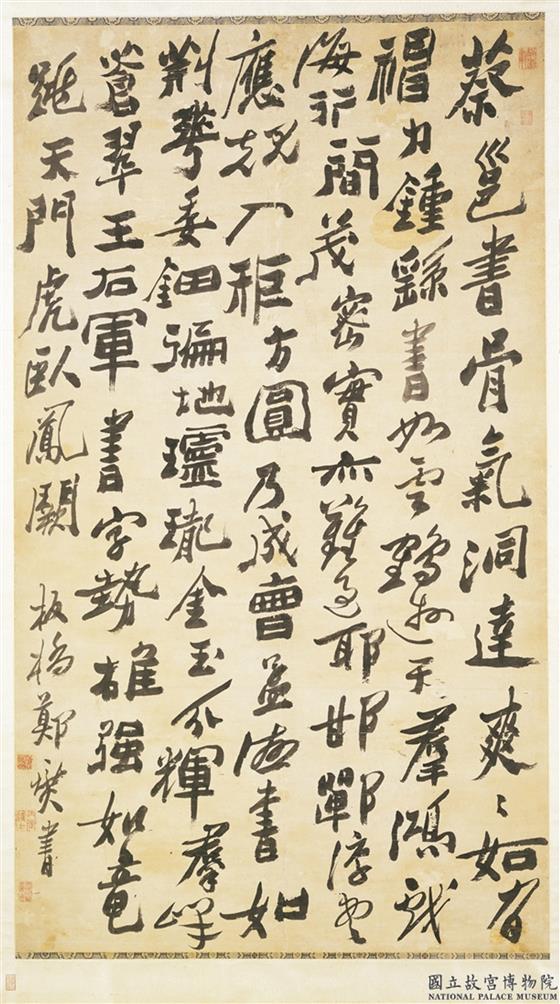 蔡邕書骨氣洞達爽爽如有
神力鍾繇書如雲鵠遊天羣鴻戲
海行間茂密實亦難過耶邯鄲淳書
應規入矩方圓乃成曾益書如
荊華委鈿遍地瓏金玉分輝羣峰
蒼翠王右軍書字勢雄強如竜
跳天門虎臥鳳闕 板橋鄭燮書
國立故宮博物院
NATIONAL PALACE MUSEUM